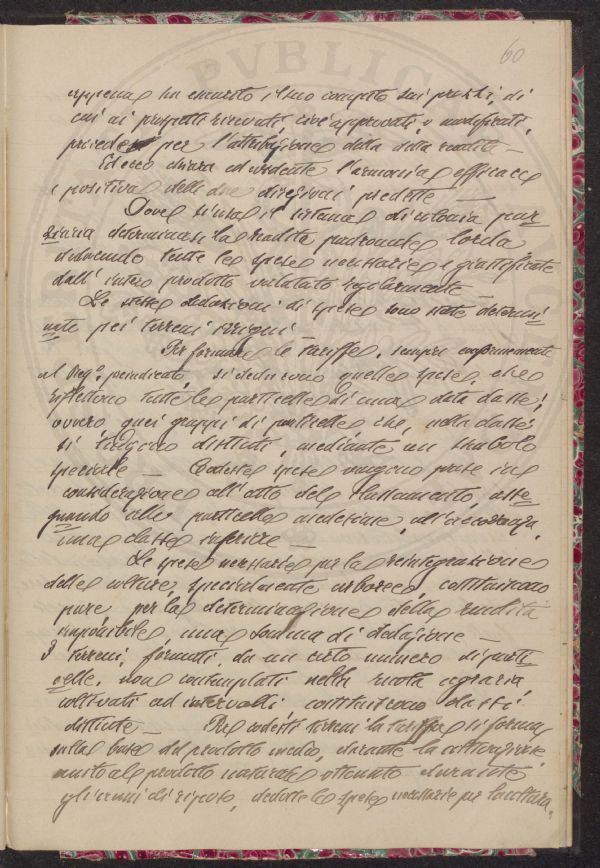 60
appena ha esaurito il suo compito sui prezzi, di
cui ai prospetti ricevuti, cioè approvati, o modificati,
procede per l'attribuzione della data rendita —
Ed ecco chiara ed evidente l'armonia efficace
e positiva delle due direzioni predette —
Dove si usa il sistema di colonia par
ziaria determinasi la rendita padronale lorda
deducendo tutte le spese necessarie e giustificate
dall'intero prodotto valutato regolarmente —
Le stesse deduzioni di spese sono state determi
nate pei terreni irrigui —
Per formare le tariffe, sempre conformemente
al Reg.° preindicato, si deducono quelle spese, che
riflettono tutte le particelle di una data classe,
ovvero quei gruppi di particelle che, nella classe
si tengono distinti, mediante un simbolo
speciale — Codeste spese vengono prese in
considerazione all'atto del classamento, asse
gnando alle particelle medesime, all'occorrenza,
una classe inferiore —
Le spese necessarie per la reintegrazione
delle colture, specialmente arboree, costituiscono
pure per la determinazione della rendita
imponibile, una somma di deduzione —
I terreni, formati da un certo numero di parti
celle, non contemplati nella ruota agraria
coltivati ad intervalli costituiscono classi
distinte — Per codesti terreni la tariffa si forma
sulla base del prodotto medio, durante la coltivazione
unito al prodotto naturale ottenuto durante
gli anni di riposo, dedotte le spese necessarie per la coltura.